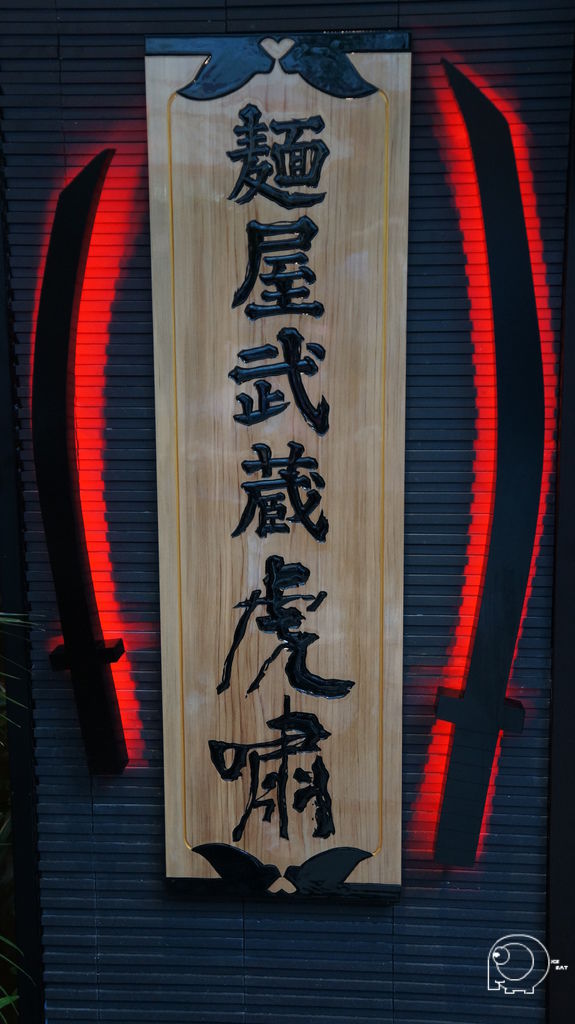 麺屋武蔵虎嘯
ICE
EAT